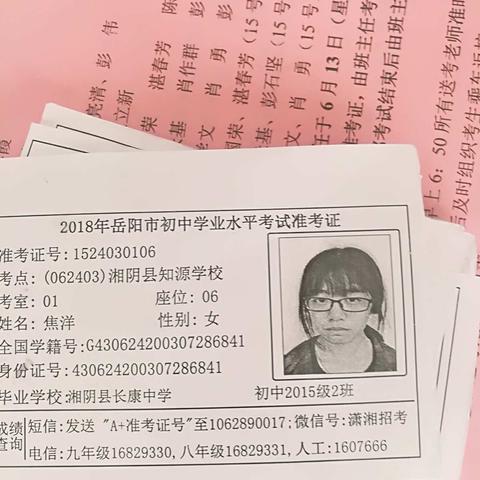 亮清、彭 伟
立新
荣 湛春芳
基 肖作群
文 肖 勇
荣、湛春芳（15号
基、彭石坚（15号
文、肖 勇（15号
任于 6 月 13 日（星
准考证，由班主任考
考试结束后由班主
上 6：50 所有送考老师准时
后及时组织考生乘车返校
2018年岳阳市初中学业水平考试准考证
准考证号:1524030106
考点:(062403)湘阴县知源学校
考室: 01 座位: 06
姓名: 焦洋 性别: 女
全国学籍号:G430624200307286841
身份证号:430624200307286841
毕业学校:湘阴县长康中学 初中2015级2班
成绩查询
短信:发送 "A+准考证号"至1062890017;微信号:潇湘招考
电信:九年级16829330,八年级16829331,人工:1607666